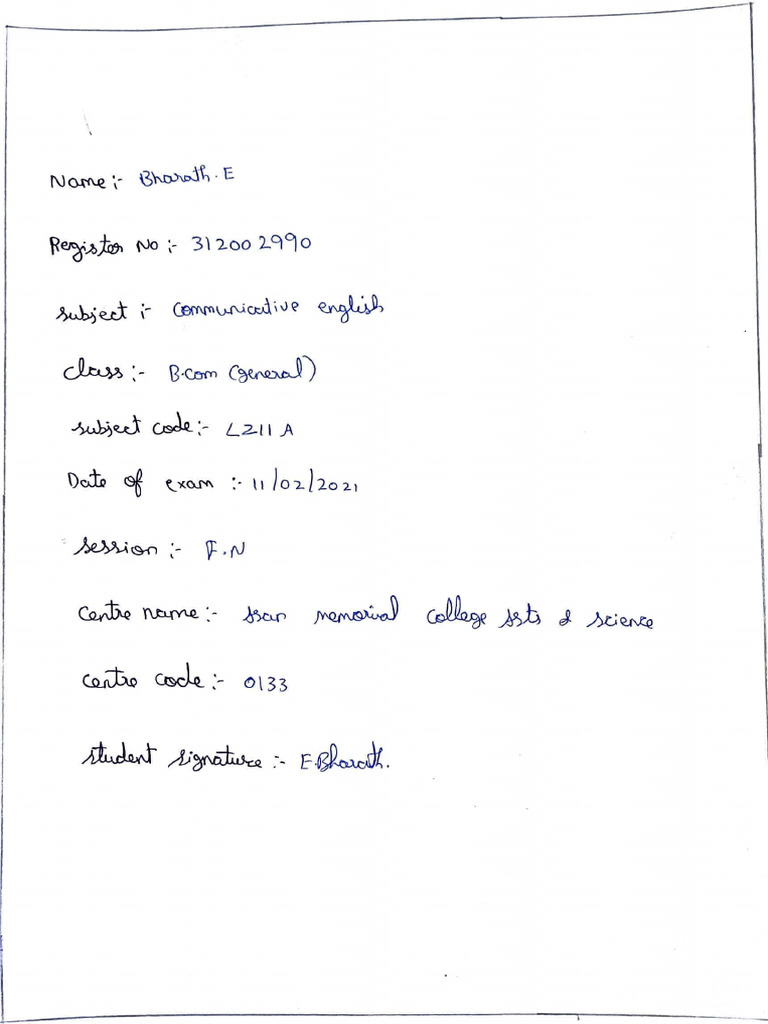 Name :- Bharath.E
Register No :- 312002990
subject :- communicative english
class :- B.com (general)
subject code :- LZ11A
Date of exam :- 11/02/2021
session :- F.N
centre name :- memorial college & science
centre code :- 0133
student signature :- E.Bharath.